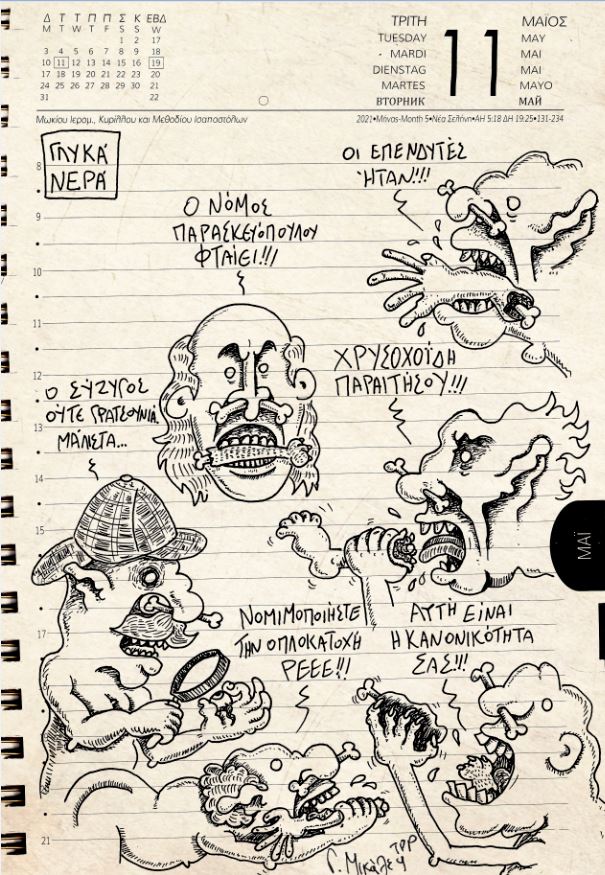 Δ Τ Τ Π Π Σ Κ ΕΒΔ
M T W T F S S W
1 2 17
3 4 5 6 7 8 9 18
10 11 12 13 14 15 16 19
17 18 19 20 21 22 23 20
24 25 26 27 28 29 30 21
31 22
ΤΡΙΤΗ
TUESDAY
MARDI
DIENSTAG
MARTES
ВТОРНИК
11
ΜΑΪΟΣ
MAY
MAI
MAI
MAYO
МАЙ
Μωκίου Ιερομ., Κυρίλλου και Μεθοδίου Ισαποστόλων
2021•Μήνας-Month 5•Νέα Σελήνη•ΑΗ 5:18 ΔΗ 19:25•131-234
ΓΛΥΚΑ
ΝΕΡΑ
ΟΙ ΕΠΕΝΔΥΤΕΣ
ΉΤΑΝ!!!
Ο ΝΌΜΟΣ
ΠΑΡΑΣΚΕΥΌΠΟΥΛΟΥ
ΦΤΑΙΕΙ!!!
ΧΡΥΣΟΧΟΪΔΗ
ΠΑΡΑΙΤΗΣΟΥ!!!
Ο ΣΎΖΥΓΟΣ
ΟΎΤΕ ΓΡΑΤΣΟΥΝΙΆ
ΜΆΛΙΣΤΑ...
ΜΑΪ
ΝΟΜΙΜΟΠΟΙΗΣΤΕ
ΤΗΝ ΟΠΛΟΚΑΤΟΧΗ
ΡΕΕΕ!!!
ΑΥΤΗ ΕΙΝΑΙ
Η ΚΑΝΟΝΙΚΌΤΗΤΑ
ΣΑΣ!!!
8
9
10
11
12
13
14
15
17
21